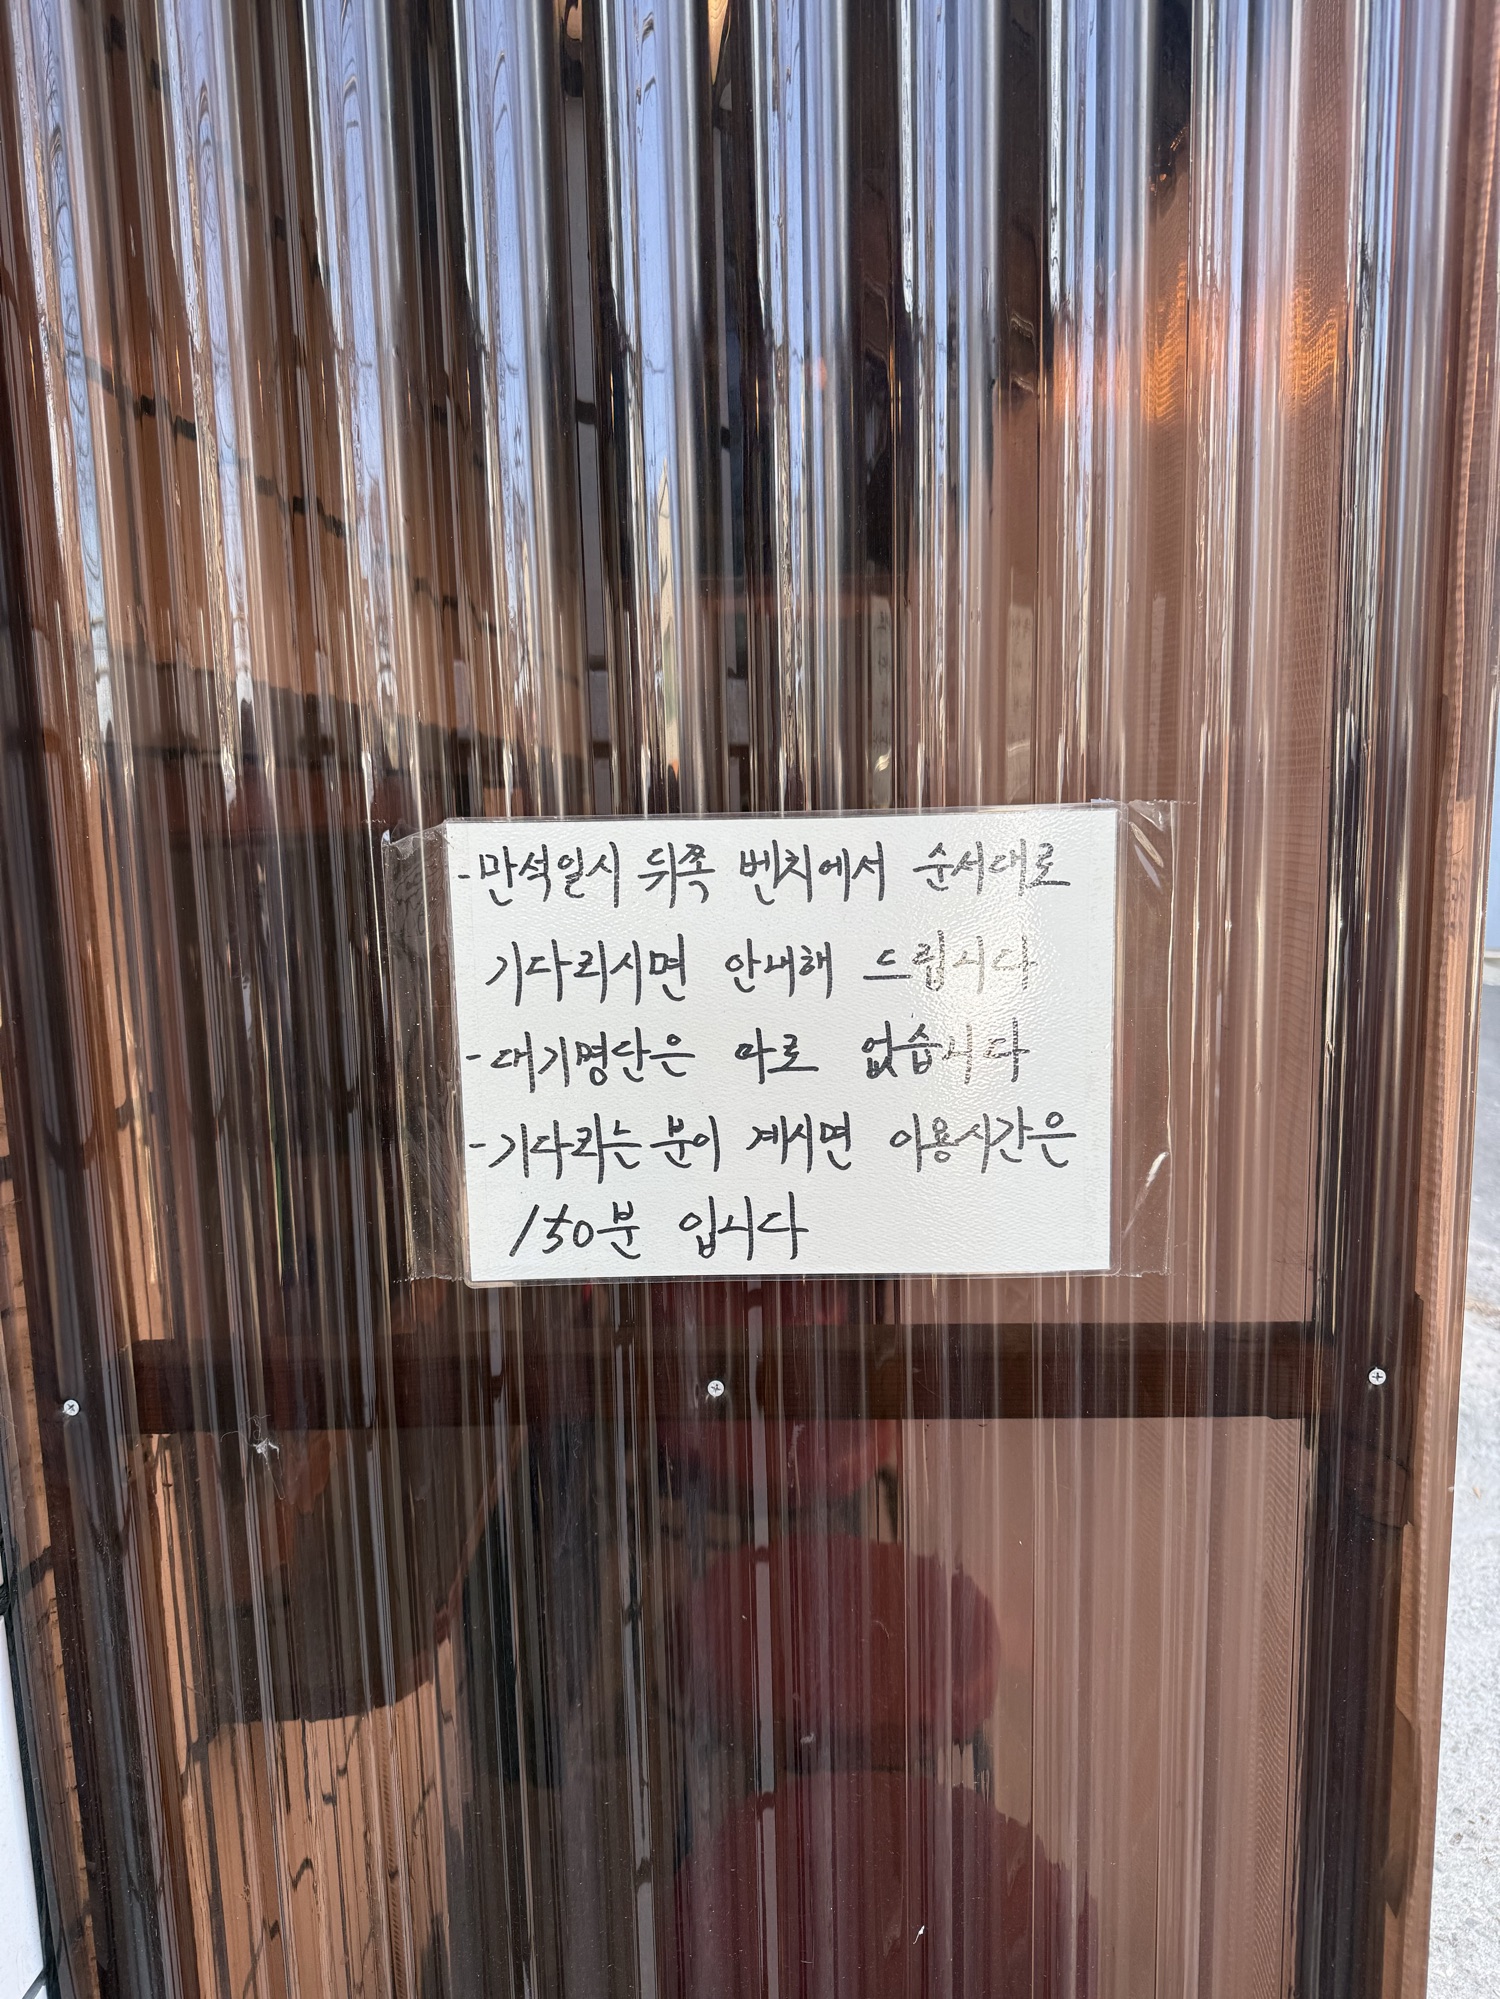 - 만석일시 뒤쪽 벤치에서 순서대로
기다리시면 안내해 드립니다
- 대기명단은 따로 없습니다
- 기다리는분이 계시면 이용시간은
150분 입니다